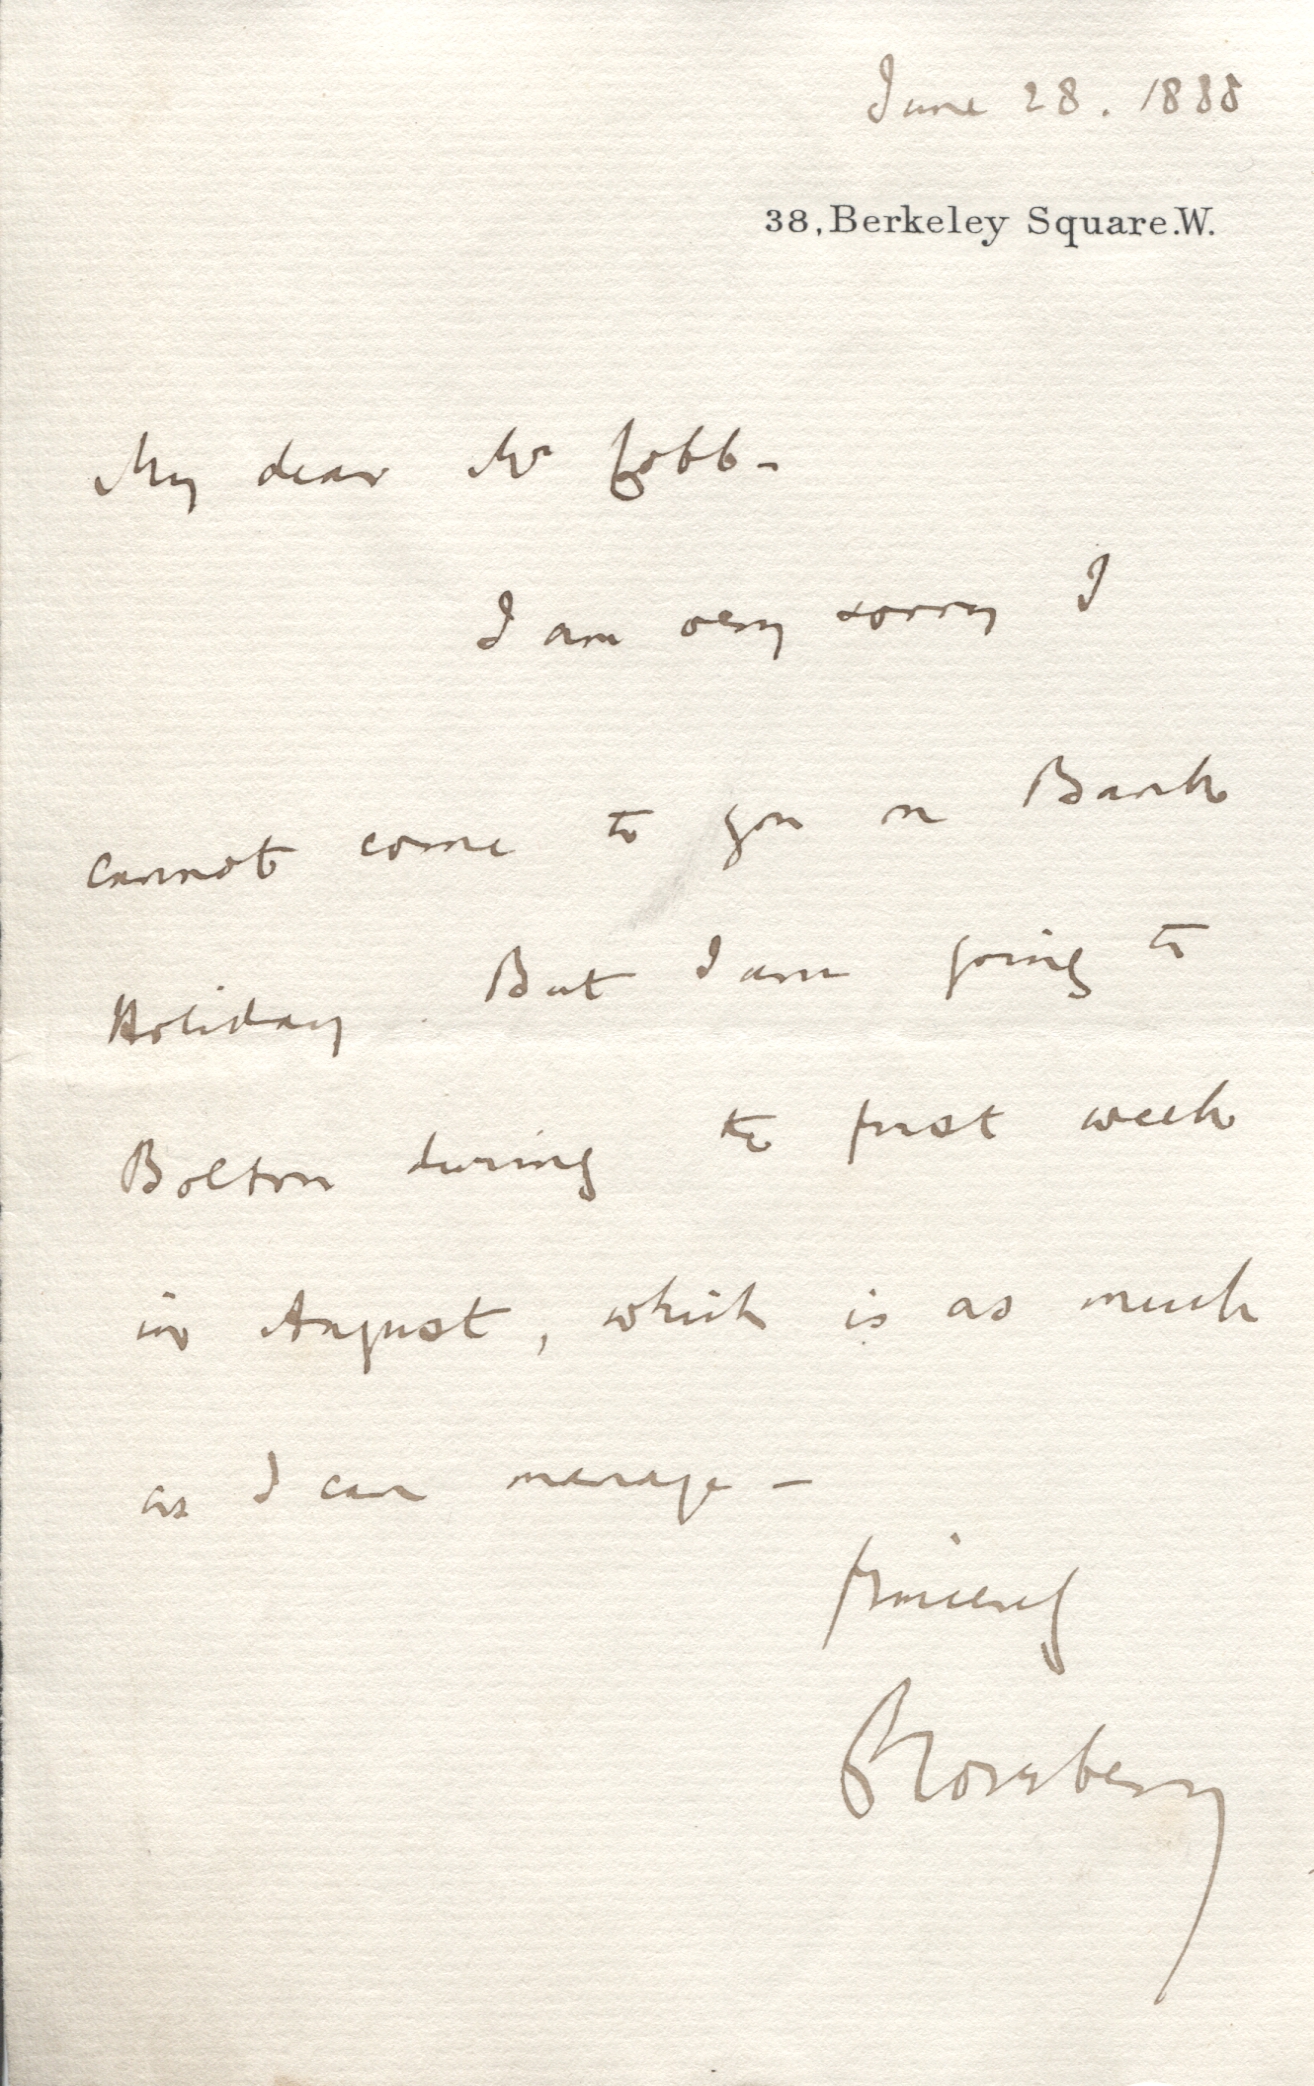 June 28. 1888
38, Berkeley Square. W.
My dear Mr Cobb -
I am very sorry I
cannot come to you on Bank
Holiday. But I am going to
Bolton during the first week
in August, which is as much
as I can manage -
Sincerely
Rosebery